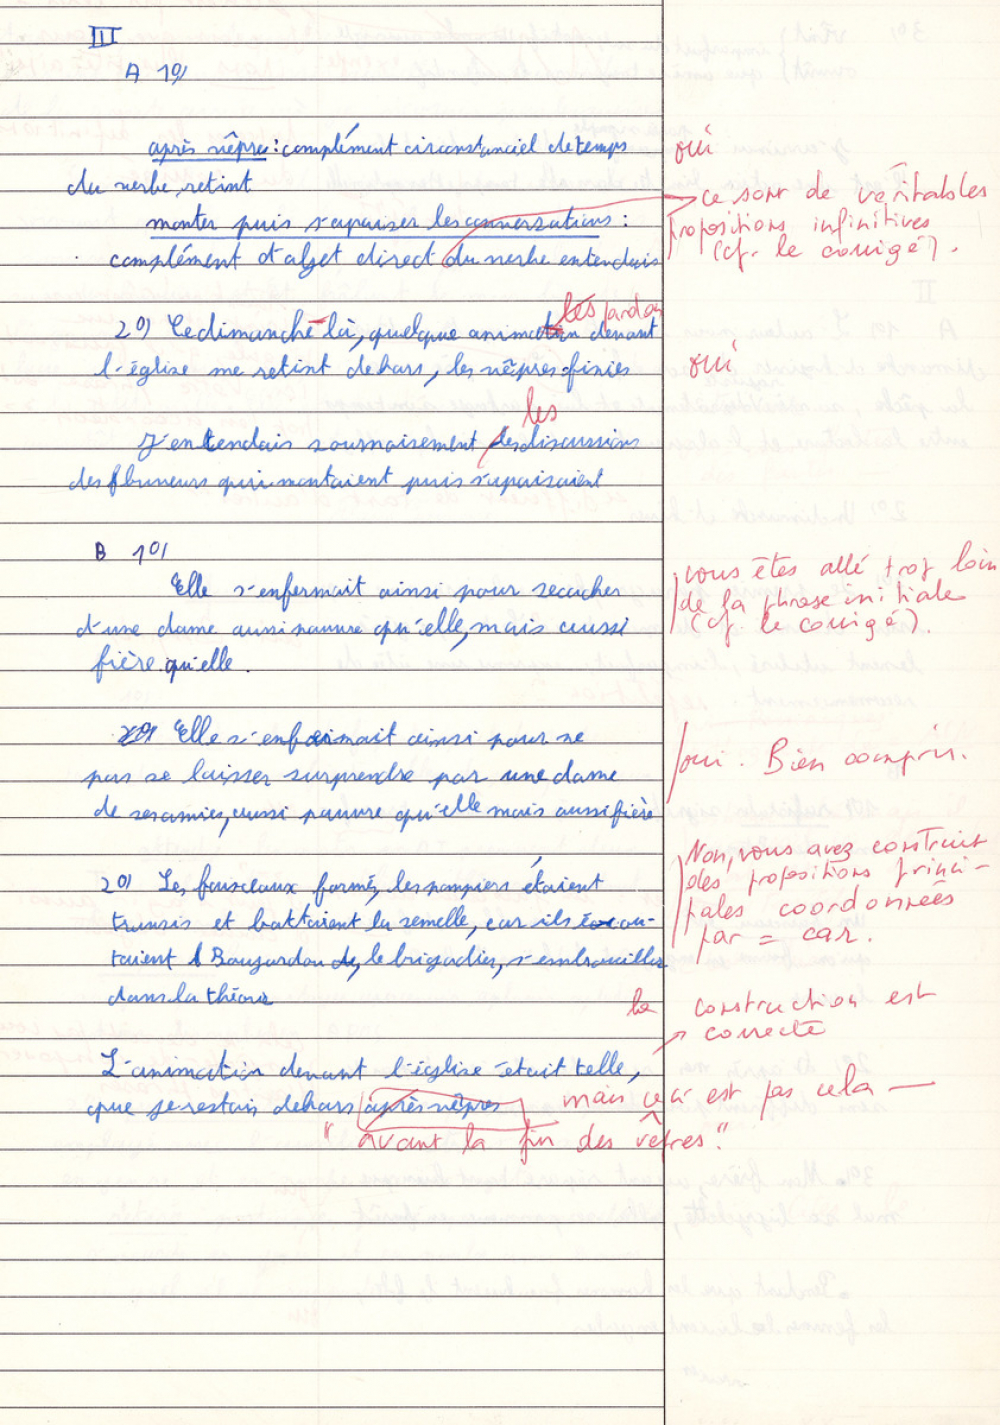 III
A 1°/
après vêpres : complément circonstanciel de temps
oui
du verbe, retint
ce sont de véritables
monter puis s'apaiser les conversations :
propositions infinitives
complément d'objet direct du verbe entendais
(cf. le corrigé).
2°/ Ce dimanche-là, quelque animation devant
l'église me retint dehors, les vêpres finies
oui
les
J'entendais sournoisement des discussions
des flaneurs qui montaient puis s'apaisaient
B 1°/
Elle s'enfermait ainsi pour se cacher
vous êtes allé trop loin
de la phrase initiale
d'une dame aussi pauvre qu'elle, mais aussi
(cf. le corrigé).
fière qu'elle.
Elle s'enfermait ainsi pour ne
oui. Bien compris.
pas se laisser surprendre par une dame
de ses amies, aussi pauvre qu'elle mais aussi fière
Non, vous avez construit
2°/ Les faisceaux formés, les pompiers étaient
des propositions princi-
transis et battaient la semelle, car ils écou-
pales coordonnées
par = car.
taient Baujardon, le brigadier, s'embrouiller
dans la théorie
la construction est
correcte
L'animation devant l'église était telle,
que je restais dehors après vêpres
mais ce n'est pas cela —
" avant la fin des vêpres".